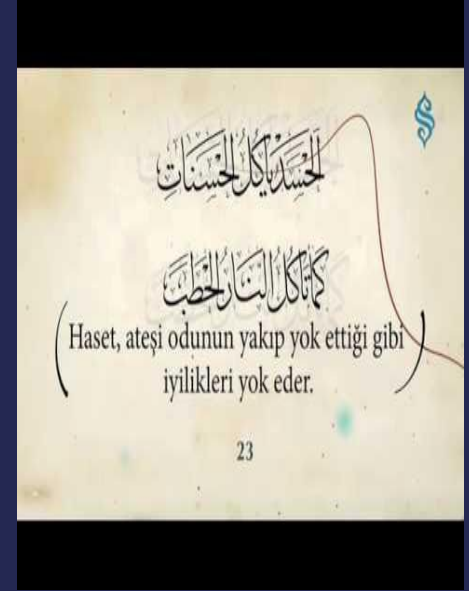 اَلْحَسَدُ يَأْكُلُ الْحَسَنَاتِ
كَمَا تَأْكُلُ النَّارُ الْحَطَبَ
Haset, ateşi odunun yakıp yok ettiği gibi
iyilikleri yok eder.
23